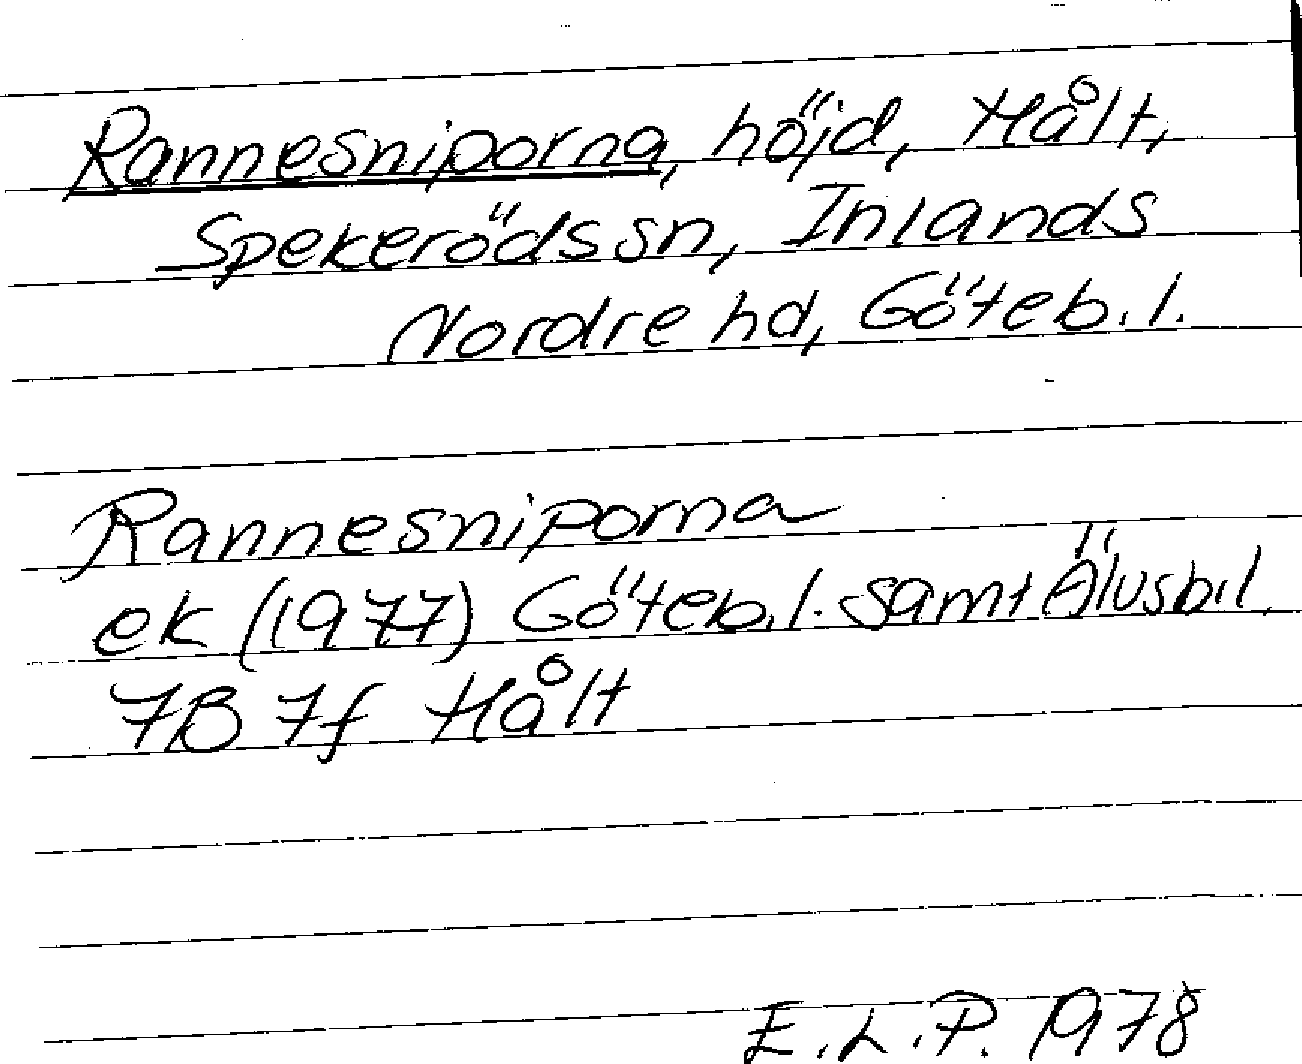 Rannesniporna, höjd, Hålt,
Spekeröds sn, Inlands
Nordre hd, Göteb.l.
Rannesniporna
ek (1977) Göteb.l. samt Älvsb.l.
7B 7f Hålt
E.L.P. 1978